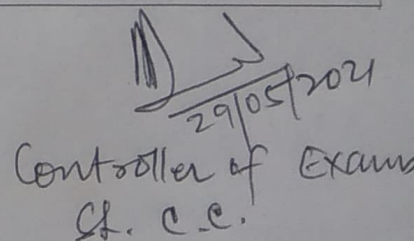 29/05/2021
Controller of Exams
St. C.C.